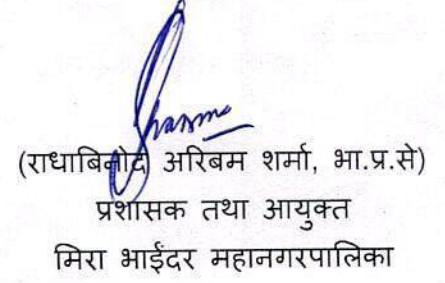 Sharma
(राधाबिनोद अरिबम शर्मा, भा.प्र.से)
प्रशासक तथा आयुक्त
मिरा भाईंदर महानगरपालिका